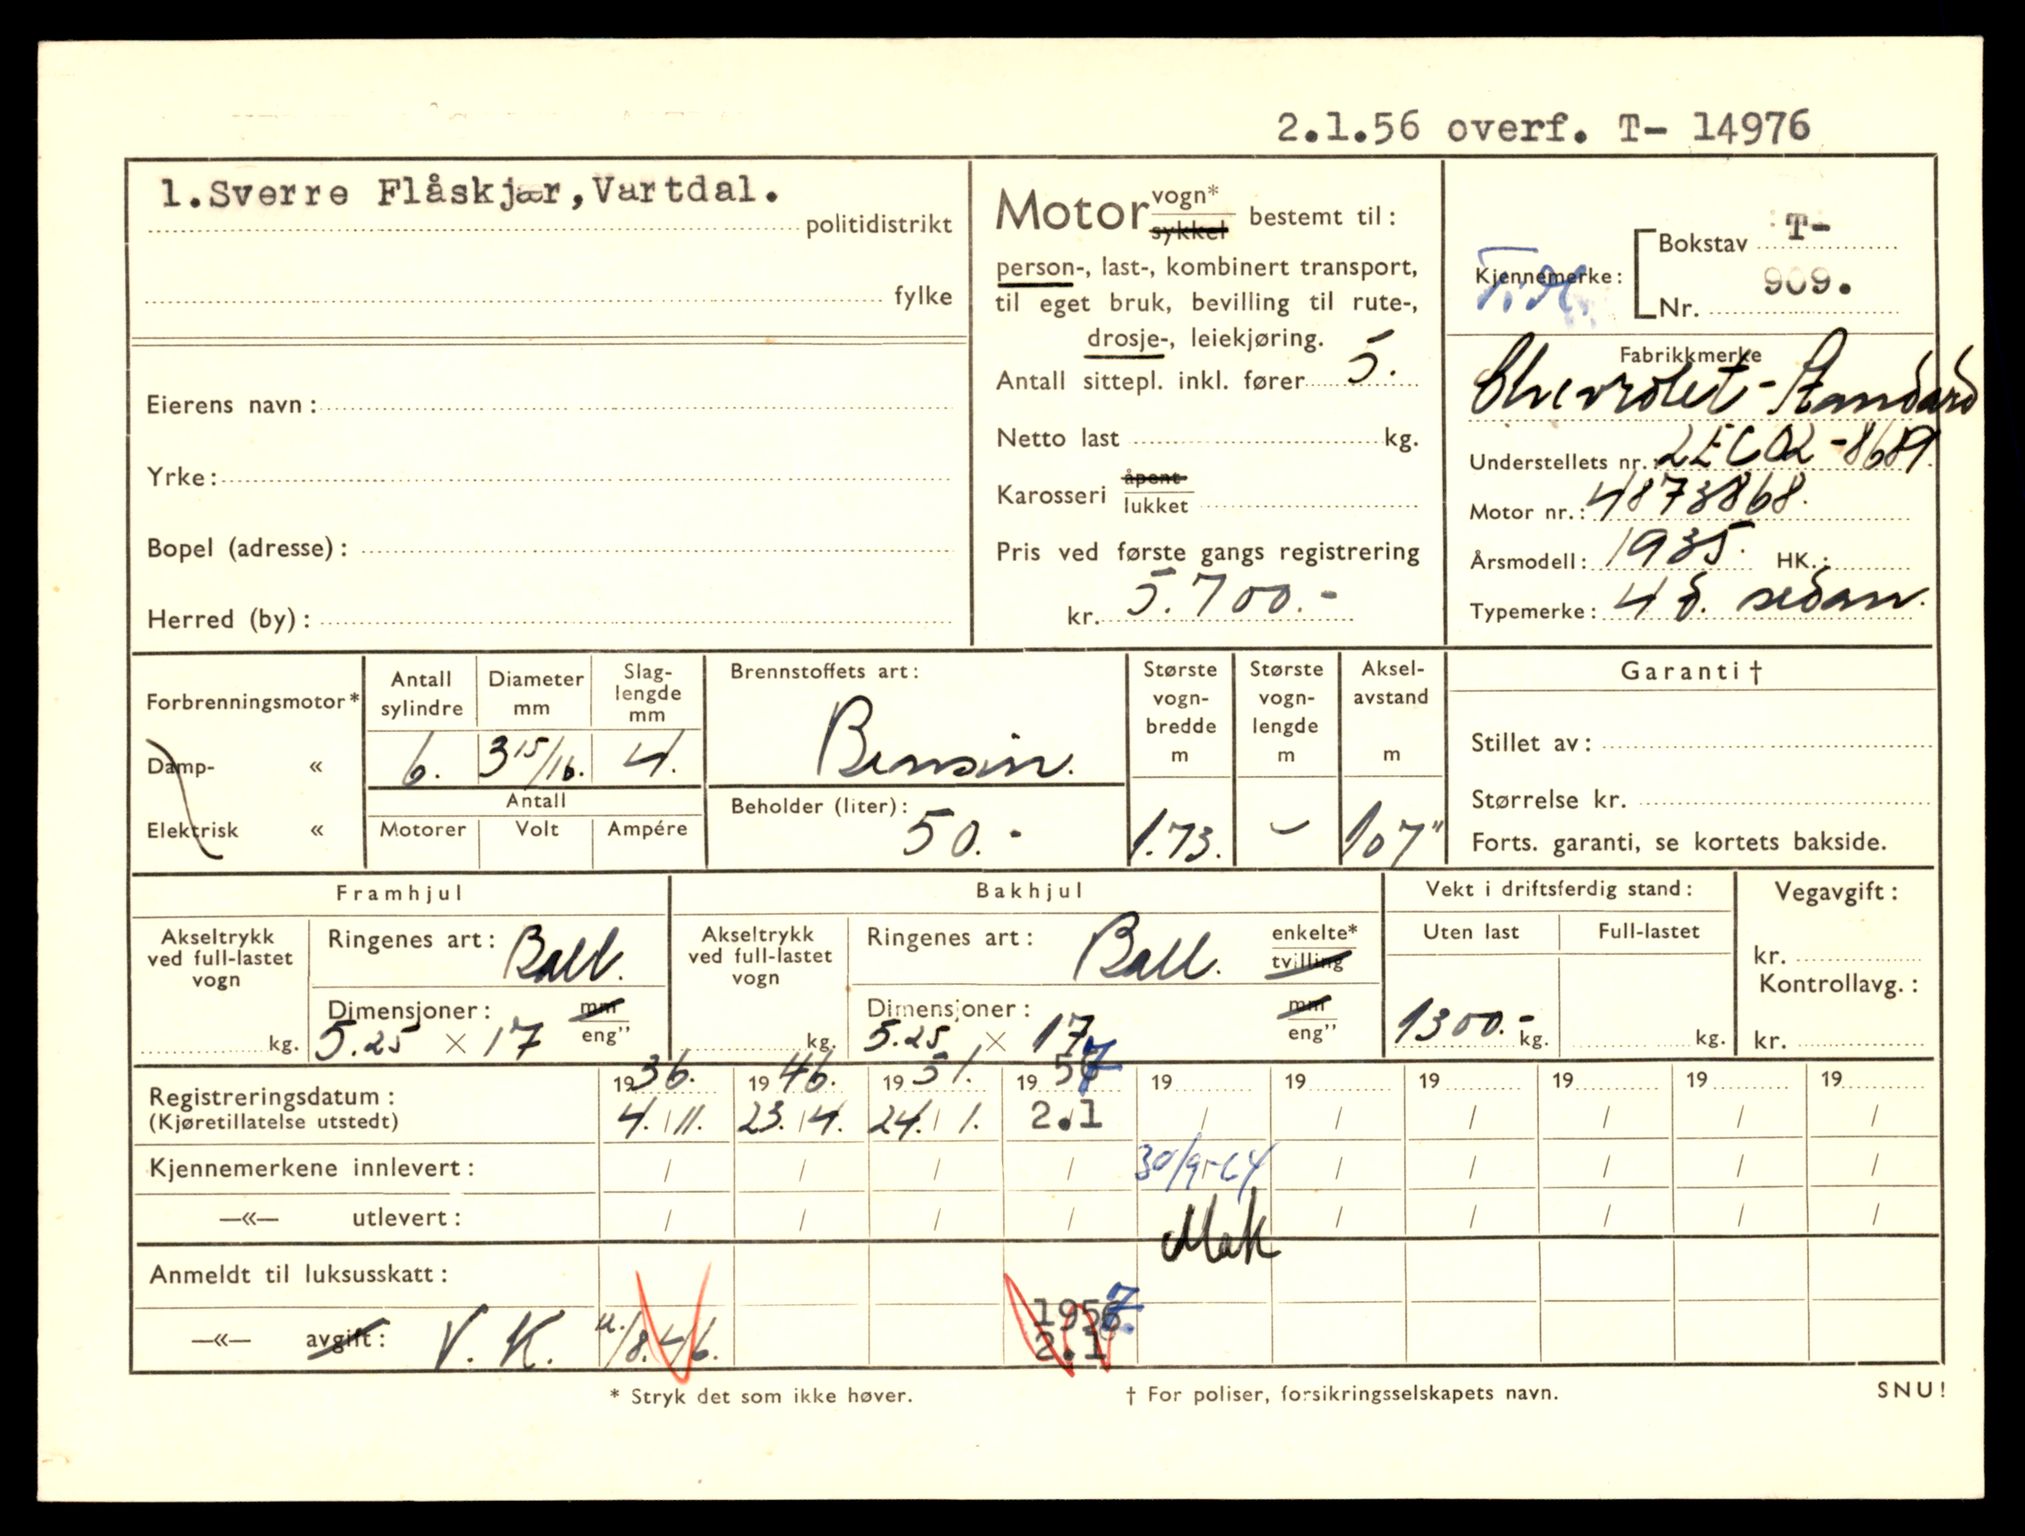 2.1.56 overf. T- 14976
1. Sverre Flåskjær, Vartdal.
politidistrikt
fylke
Eierens navn:
Yrke:
Bopel (adresse):
Herred (by):
Motor vogn*
sykkel bestemt til:
person-, last-, kombinert transport,
til eget bruk, bevilling til rute-,
drosje-, leiekjøring.
Antall sittepl. inkl. fører 5.
Netto last kg.
Karosseri åpent
lukket
Pris ved første gangs registrering
kr. 5.700.-
Bokstav T-
Kjennemerke:
Nr. 909.
Fabrikkmerke
Chevrolet - Standard
Understellets nr.: 2EC02-8689
Motor nr.: 4873868.
Årsmodell: 1935. HK.:
Typemerke: 4 d. sedan.
Forbrenningsmotor*
Damp- «
Elektrisk «
Antall sylindre Diameter mm Slag-lengde mm
6. 3 15/16. 4.
Antall
Motorer Volt Ampére
Brennstoffets art:
Bensin.
Beholder (liter): 50.-
Største vogn-bredde m Største vogn-lengde m Aksel-avstand m
1.73. - 107"
Garanti †
Stillet av:
Størrelse kr.
Forts. garanti, se kortets bakside.
Framhjul
Akseltrykk ved full-lastet vogn
kg.
Ringenes art: Ball.
Dimensjoner: mm
5.25 × 17 eng"
Bakhjul
Akseltrykk ved full-lastet vogn
kg.
Ringenes art: Ball. enkelte*
tvilling
Dimensjoner: mm
5.25 × 17 eng"
Vekt i driftsferdig stand:
Uten last Full-lastet
1300.- kg. kg.
Vegavgift:
kr.
Kontrollavg.:
kr.
Registreringsdatum: 1936. 1946. 1951. 1957 19 19 19 19 19 19
(Kjøretillatelse utstedt) 4./11. 23./4. 24./1. 2.1 / / / / / /
Kjennemerkene innlevert: / / / / 30/9-64 / / / / /
—«— utlevert: / / / / Mak / / / / /
Anmeldt til luksusskatt:
—«— avgift: V. K. /8.46. 1957.
2.1
* Stryk det som ikke høver. † For poliser, forsikringsselskapets navn. SNU!